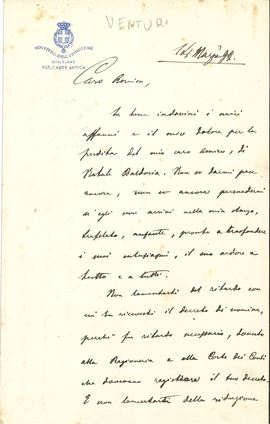 VENTURI
MINISTERO DELL'ISTRUZIONE
DIVISIONE
PER L'ARTE ANTICA
14 Marzo 99.
Caro Romico,
Tu bene indovini i miei
affanni e il mio dolore per la
perdita del mio caro amico, di
Natale Baldoria. Non so darmi pace
ancora, non so ancora persuadermi
s'egli non arrivi nella mia stanza,
trafelato, ansante, pronto a trasfondere
i suoi entusiasmi, il suo ardore a
tutto e a tutti.
Non lamentarti del ritardo con
cui tu ricevesti il decreto di nomina,
perchè fu ritardo necessario, dovuto
alla Ragioneria e alla Corte dei Conti
che dovevano registrare il tuo decreto.
E non lamentarti della riduzione